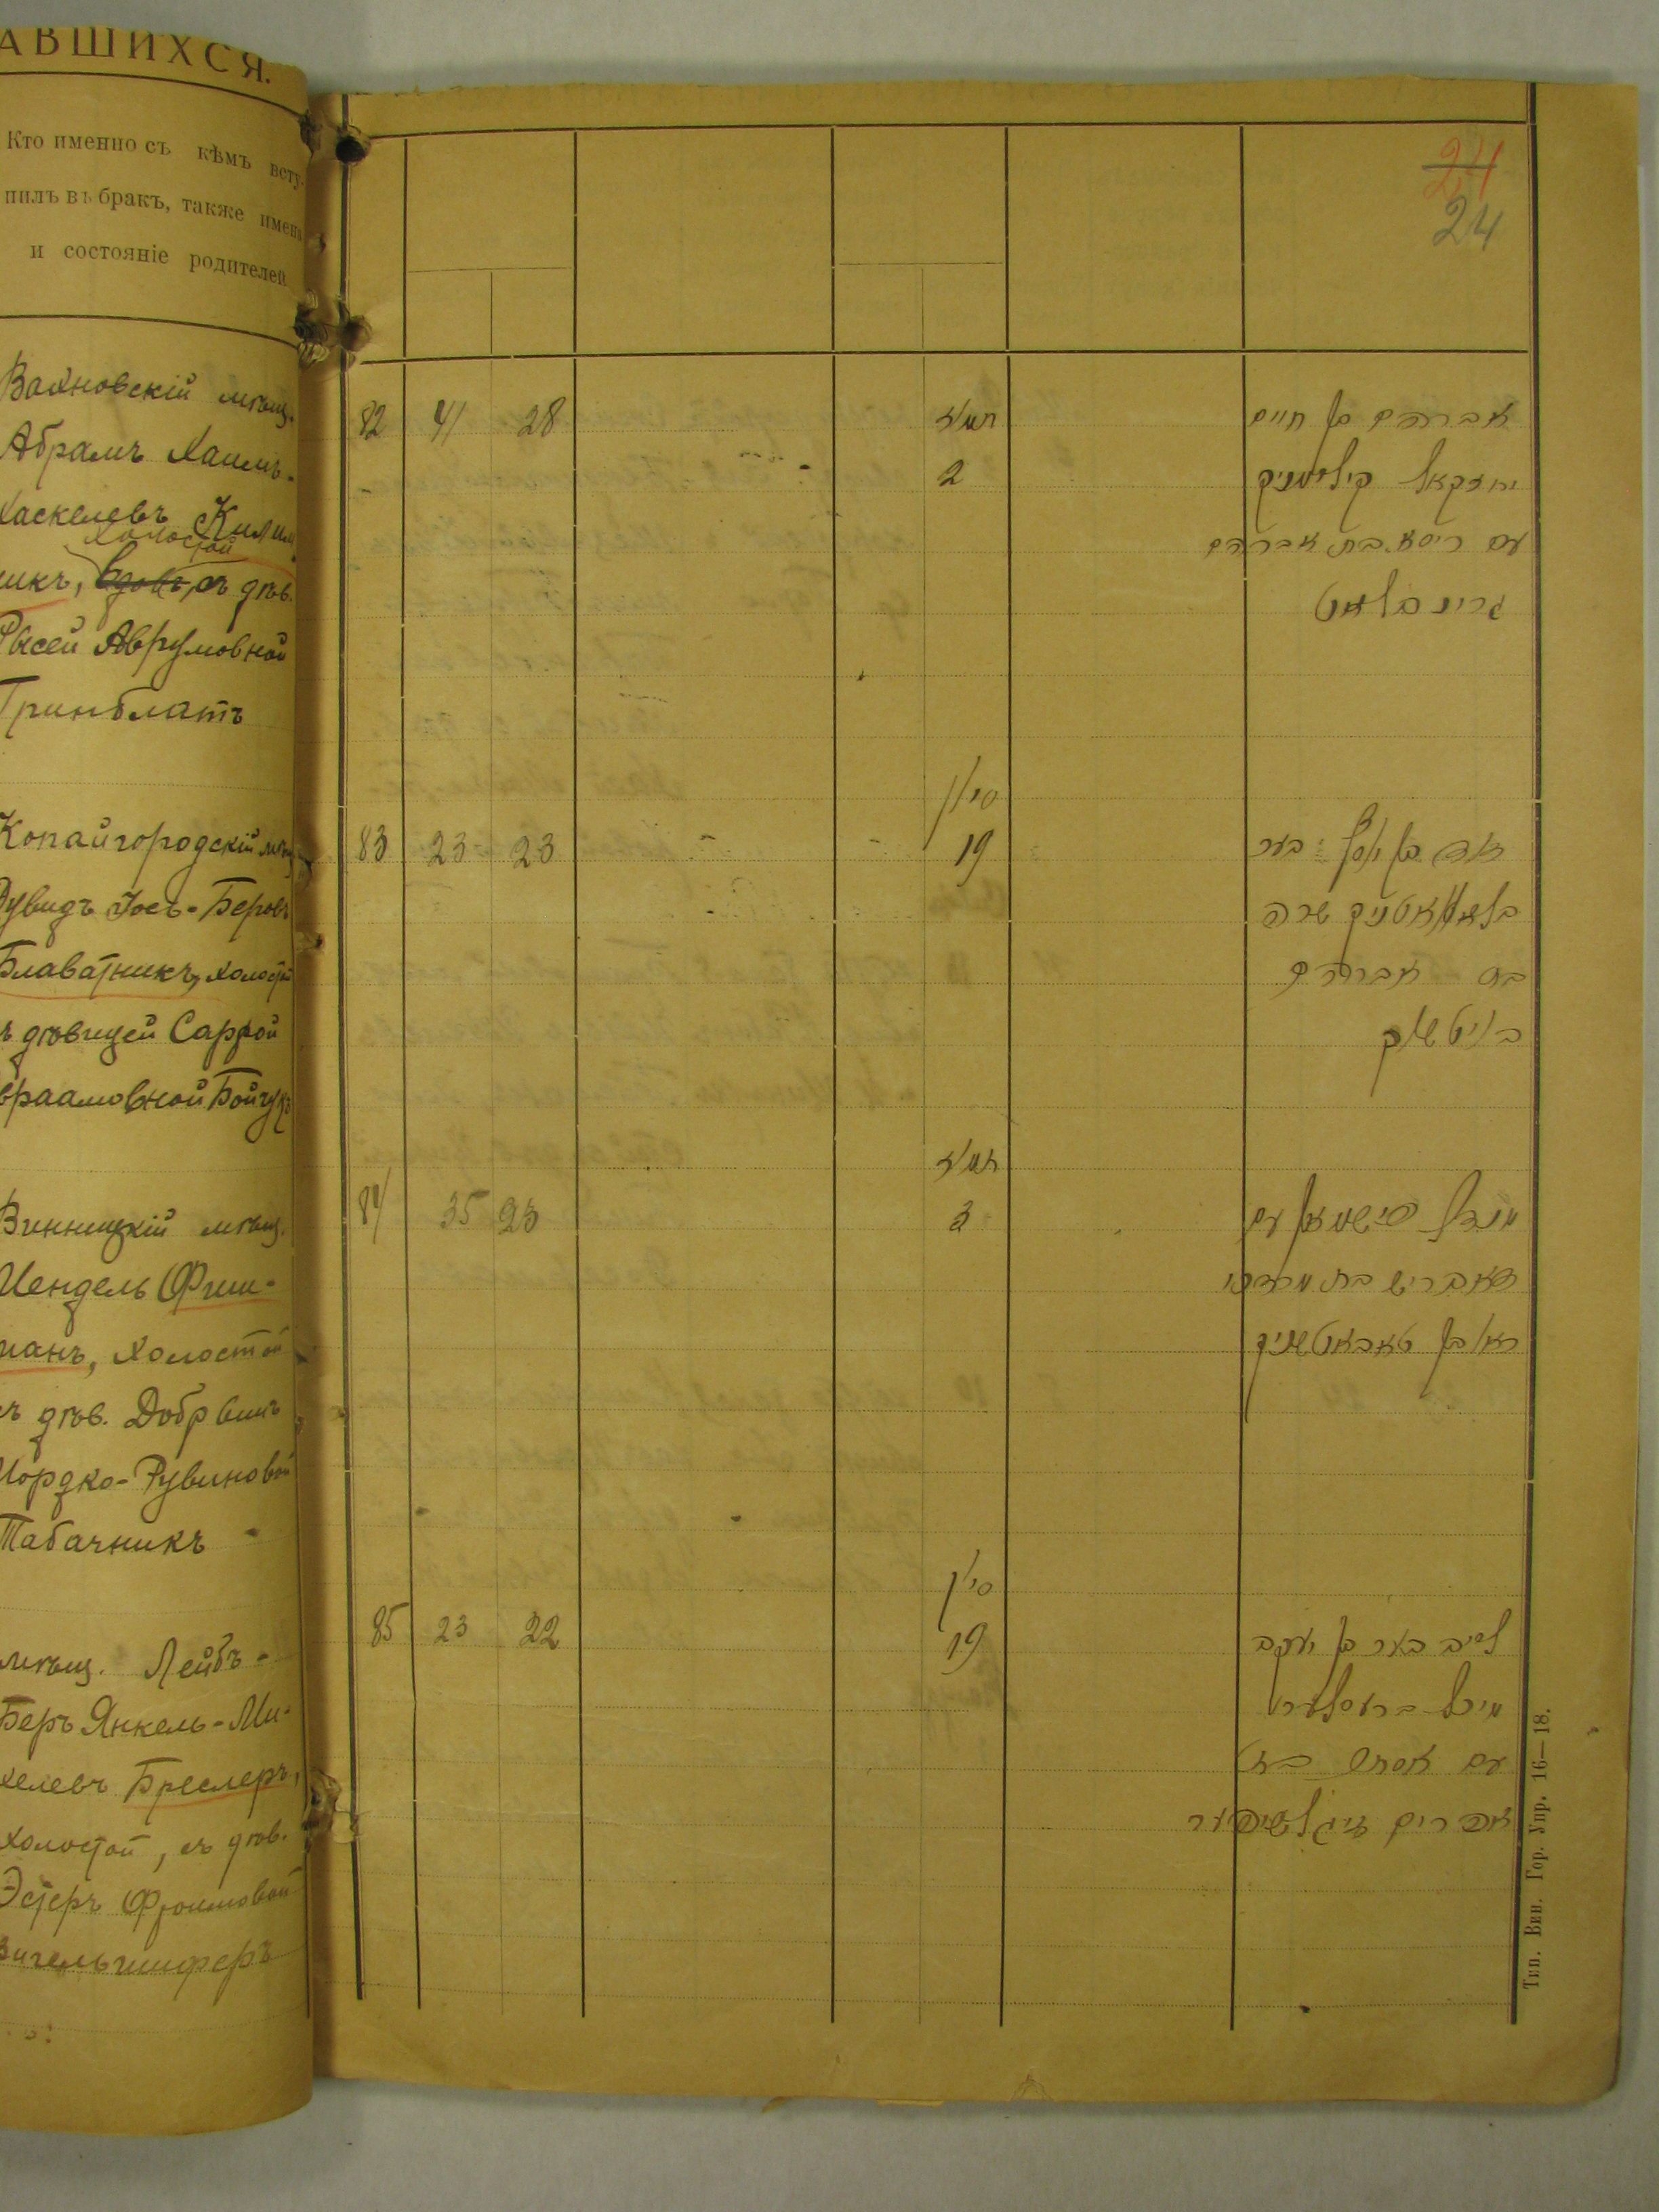 АВШИХСЯ.
Кто именно съ кѣмъ всту-
пилъ въ бракъ, также имена
и состояніе родителей
Вахновскій мѣщ.
Абрамъ Хаимъ-
Хаскелевъ Килим
холостой
никъ, вдовъ, съ дѣв.
Рысей Аврумовной
Гринблатъ
Копайгородскій мѣщ
Дувидъ Іось-Беровъ
Блаватникъ, холостой
съ дѣвицей Саррой
Авраамовной Бойчукъ
Винницкій мѣщ.
Мендель Фиш-
манъ, холостой
съ дѣв. Добрышъ
Мордко-Рувиновой
Табачникъ
мѣщ. Лейбъ-
Беръ Янкель-Ми-
хелевъ Бреслеръ,
холостой, съ дѣв.
Эстеръ Фроимовой
Зигельшиферъ
24
24
82 41 28 תמוז אברהם בן חיים
2 יחזקאל קילימניק
עם ריסא בת אברהם
גרינבלאט
סיון
83 23 23 19 דוד בן יוסף בער
בלאוואטניק שרה
בת אברהם
בויטשוק
תמוז
84 35 23 3 מענדל פישמאן עם
דאבריש בת מרדכי
ראובן טאבאטשניק
סיון
85 23 22 19 לייב בער בן יעקב
מיכל ברעסלער
עם אסתר בת
אפרים ציגלשיפער
Тип. Вин. Гор. Упр. 16—18.